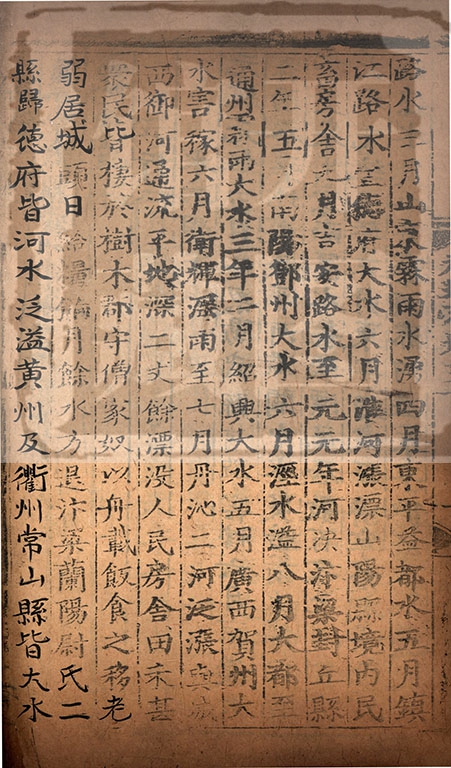 路水三月山霖雨水湧四月東平益都水五月鎮
江路水府大水六月淮河漲漂山陽縣境內民
畜房舍九月吉安路水至元元年河決汴梁封丘縣
二年五月南陽鄧州大水六月涇水溢八月大都至
通州霖雨大水三年二月紹興大水五月廣西賀州大
水害稼六月衛輝淫雨至七月丹沁二河泛漲與城
西御河通流平地深二丈餘漂没人民房舍田禾甚
衆民皆棲於樹木郡守僧家奴以舟載飯食之移老
弱居城頭日給糧餉月餘水方退汴梁蘭陽尉氏二
縣歸德府皆河水泛溢黃州及衢州常山縣皆大水